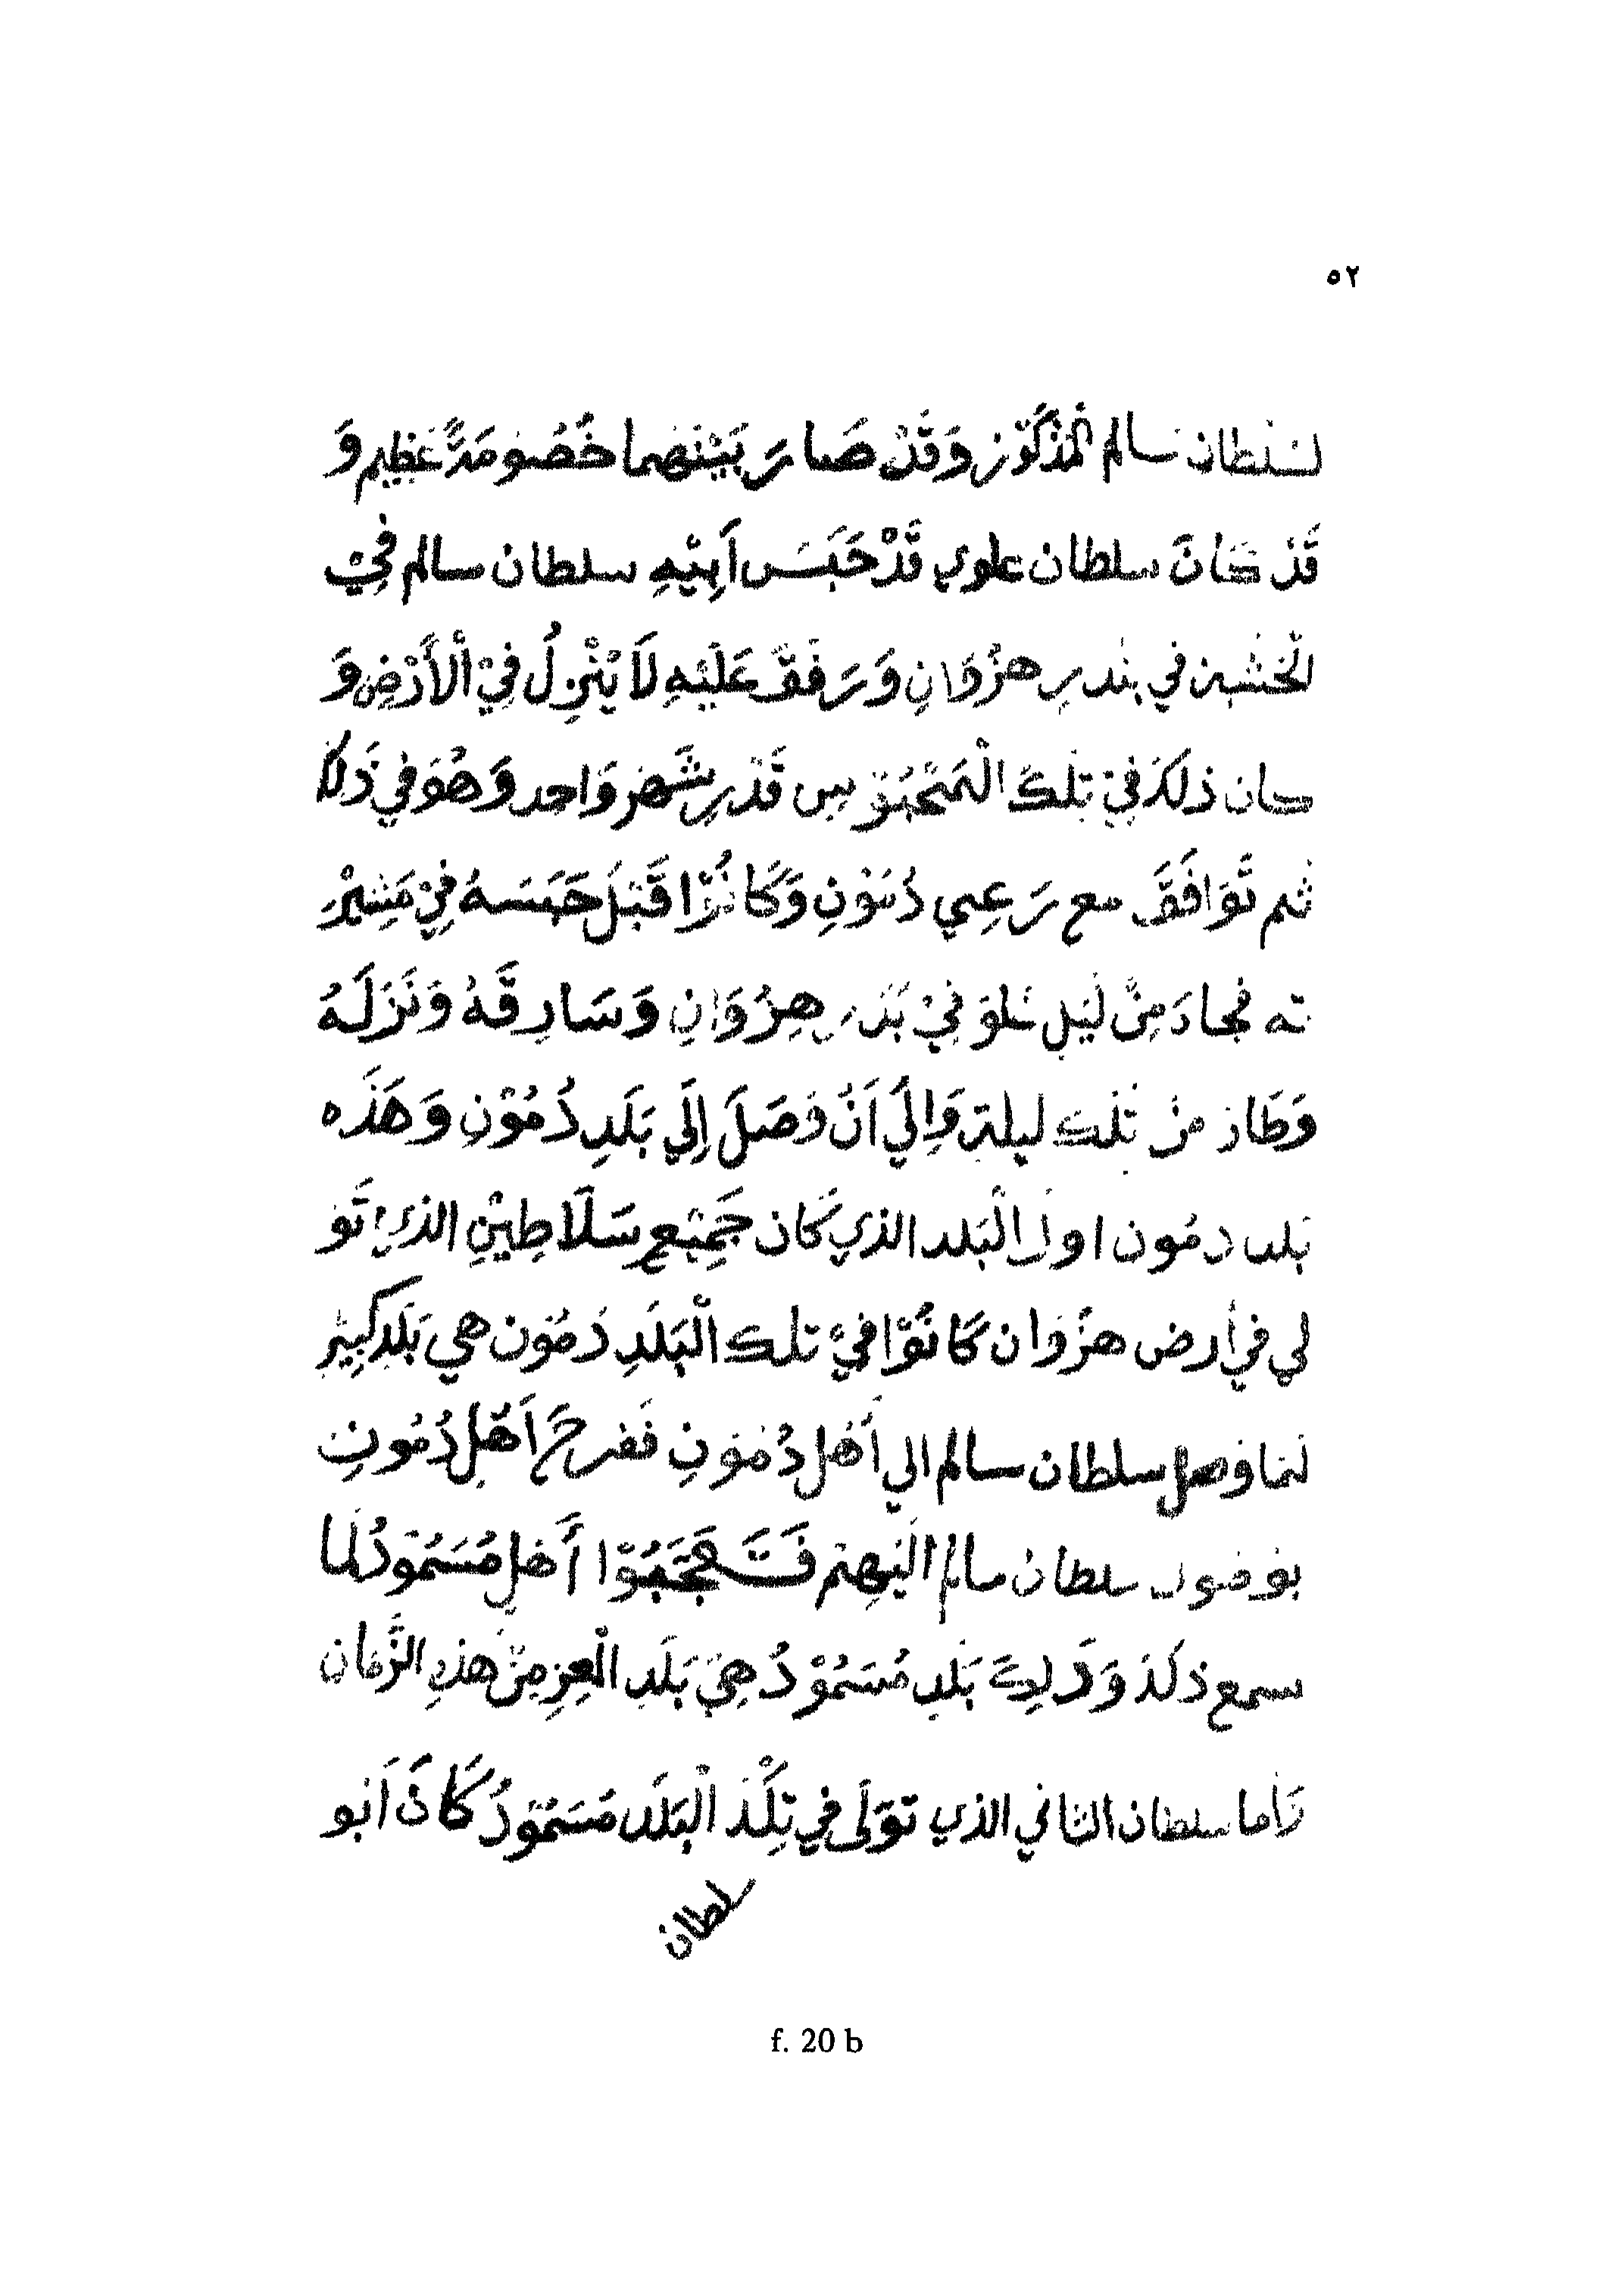 ٥٢
لسلطان سالم المَذْكُوْر وَقَدْ صَارَ بَيْنَهُما خُصُومَةً عَظِيم وَ
قَدْ كَانَ سلطان علوي قَدْ حَبَسَ اَبِيْهِ سلطان سالم فِيْ
الْخَشب في بندر هِزْوَانِ وَرَفَقَّ عَلَيْهِ لَا يُنْزِلُ فِيْ الْأَرْضِ وَ
كان ذلكَ فِيْ تِلْكَ الْمَحْبُوْس قَدْرِ شَهْر وَاحِد وَهُوَ في
ثم تَّوَافَقَّ مع رَعِي دُمُوْنِ وَكَانُوْا قَبْلَ حَبَسَهُ فِيْ
مِنْ لَيْلِ فِيْ هِزْوَانِ وَسَارِقَهُ وَنَزَلَهُ
مِنْ تِلْكَ ليلة وَاِلَي اَنْ وَصَلَ اِلَي بَلَدِ دُمُوْنِ وَهَذَه
بَلد دمُون اول الْبَلد الذي كَان جَمِيْعِ سَلَاطِيْنِ الذي تَو
لي في أرض هِزْوَان كَانُوْا فِيْ تلك الْبَلَدِ دَمُوْن هي بَلَدِ كَبِيْر
لما وصل سلطان سالم الي أَهْل دُمُوْنِ فَفرحَ اَهْل دُمُونِ
بوصول سلطان سالم الَيْهِم فَتَعَجَّبُوْا أَهل مُسَمُوْدُ لَمَا
سمع ذلكَ وَ بَلَدِ مُسَمُوْدُ هِيَ بَلَدِ الْعِزِ مِنْ هذِهِ الزَّمَان
وَاما سلطان الثاني الذي تَوَلَى فِي تِلْكَ الْبَلَد مُسَمُوْدُ كَانَ اَبُو
سلطان
f. 20 b